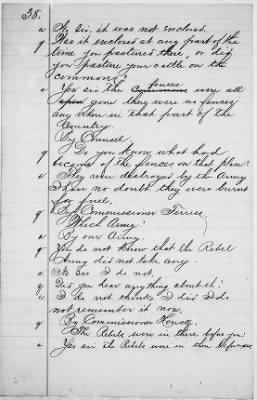 38.
a No Sir, it was not enclosed.
q Was it enclosed at any part of the
time you pastured there, or did
you pasture your cattle on the
commons?
a Yes sir the fences were all
gone there were no fences
any where in that part of the
Country.
By Counsel
q Do you know what had
become of the fences on that place?
a They were destroyed by the Army
I have no doubt they were burnt
for fuel.
By Commissioner Ferriss
q Which Army?
a By our Army.
q You do not know that the Rebel
Army did not take any.
a No Sir. I do not.
q Did you hear anything about it?
a I do not think I did I do
not remember it now.
By Commissioner Howell
q The Rebels were in there before you?
a Yes sir the Rebels were in there before us